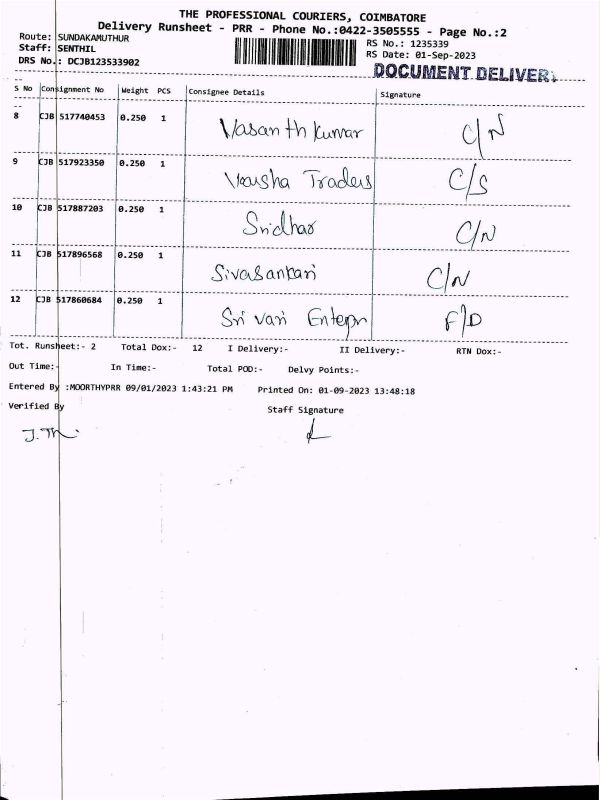 THE PROFESSIONAL COURIERS, COIMBATORE
Delivery Runsheet - PRR - Phone No.:0422-3505555 - Page No.:2
Route: SUNDAKAMUTHUR
RS No.: 1235339
Staff: SENTHIL
RS Date: 01-Sep-2023
DRS No.: DCJB123533902
DOCUMENT DELIVERY
S No Consignment No Weight PCS Consignee Details Signature
8 CJB 517740453 0.250 1 Vasanth Kumar C/N
9 CJB 517923350 0.250 1 Traders C/S
10 CJB 517887203 0.250 1 Sridhar C/N
11 CJB 517896568 0.250 1 Sivasankari C/N
12 CJB 517860684 0.250 1 Sri vari Enterpr F/D
Tot. Runsheet:- 2 Total Dox:- 12 I Delivery:- II Delivery:- RTN Dox:-
Out Time:- In Time:- Total POD:- Delvy Points:-
Entered By :MOORTHYPRR 09/01/2023 1:43:21 PM Printed On: 01-09-2023 13:48:18
Verified By Staff Signature